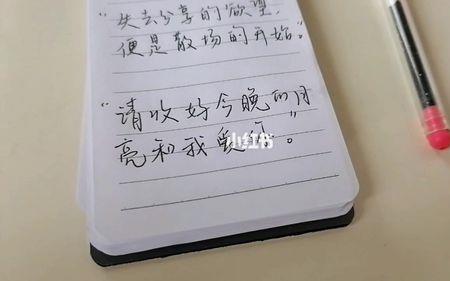 “失去分享的欲望，
便是散场的开始。”
“请收好今晚的月
亮和我 。”
小红书